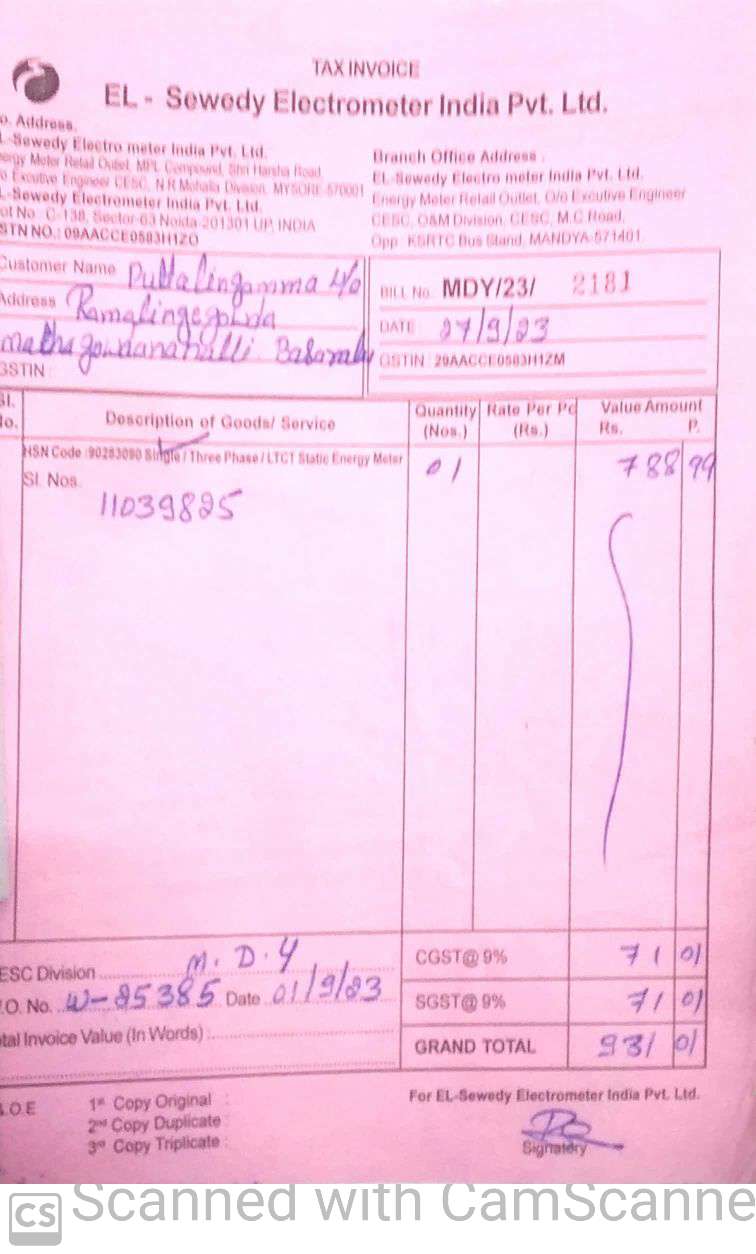 TAX INVOICE
EL - Sewedy Electrometer India Pvt. Ltd.
o. Address.
L-Sewedy Electro meter India Pvt. Ltd.
ergy Meter Retail Outlet, MPL Compound, Shri Harsha Road,
o Excutive Engineer CESC, N.R Mohalla Division, MYSORE-570001
L-Sewedy Electrometer India Pvt. Ltd.
ot No. C-138, Sector-63 Noida-201301 UP, INDIA
STN NO.: 09AACCE0583H1ZO
Branch Office Address :
EL-Sewedy Electro meter India Pvt. Ltd.
Energy Meter Retail Outlet, O/o Excutive Engineer
CESC, O&M Division, CESC, M.C Road,
Opp. KSRTC Bus Stand, MANDYA-571401.
Customer Name Puttalingamma
Address Ramalingegowda
GSTIN
BILL No. MDY/23/ 2181
DATE 27/9/23
GSTIN: 29AACCE0583H1ZM
Sl. No. Description of Goods/ Service Quantity (Nos.) Rate Per Pc (Rs.) Value Amount Rs. P.
HSN Code :90283090 Single / Three Phase / LTCT Static Energy Meter 01 788 99
Sl. Nos.
11039825
ESC Division M.D.Y CGST@ 9% 71 01
.O. No. W-25385 Date 01/9/23 SGST@ 9% 71 01
tal Invoice Value (In Words) GRAND TOTAL 931 01
.O.E
1st Copy Original :
2nd Copy Duplicate :
3rd Copy Triplicate :
For EL-Sewedy Electrometer India Pvt. Ltd.
Signatory
CS Scanned with CamScanne